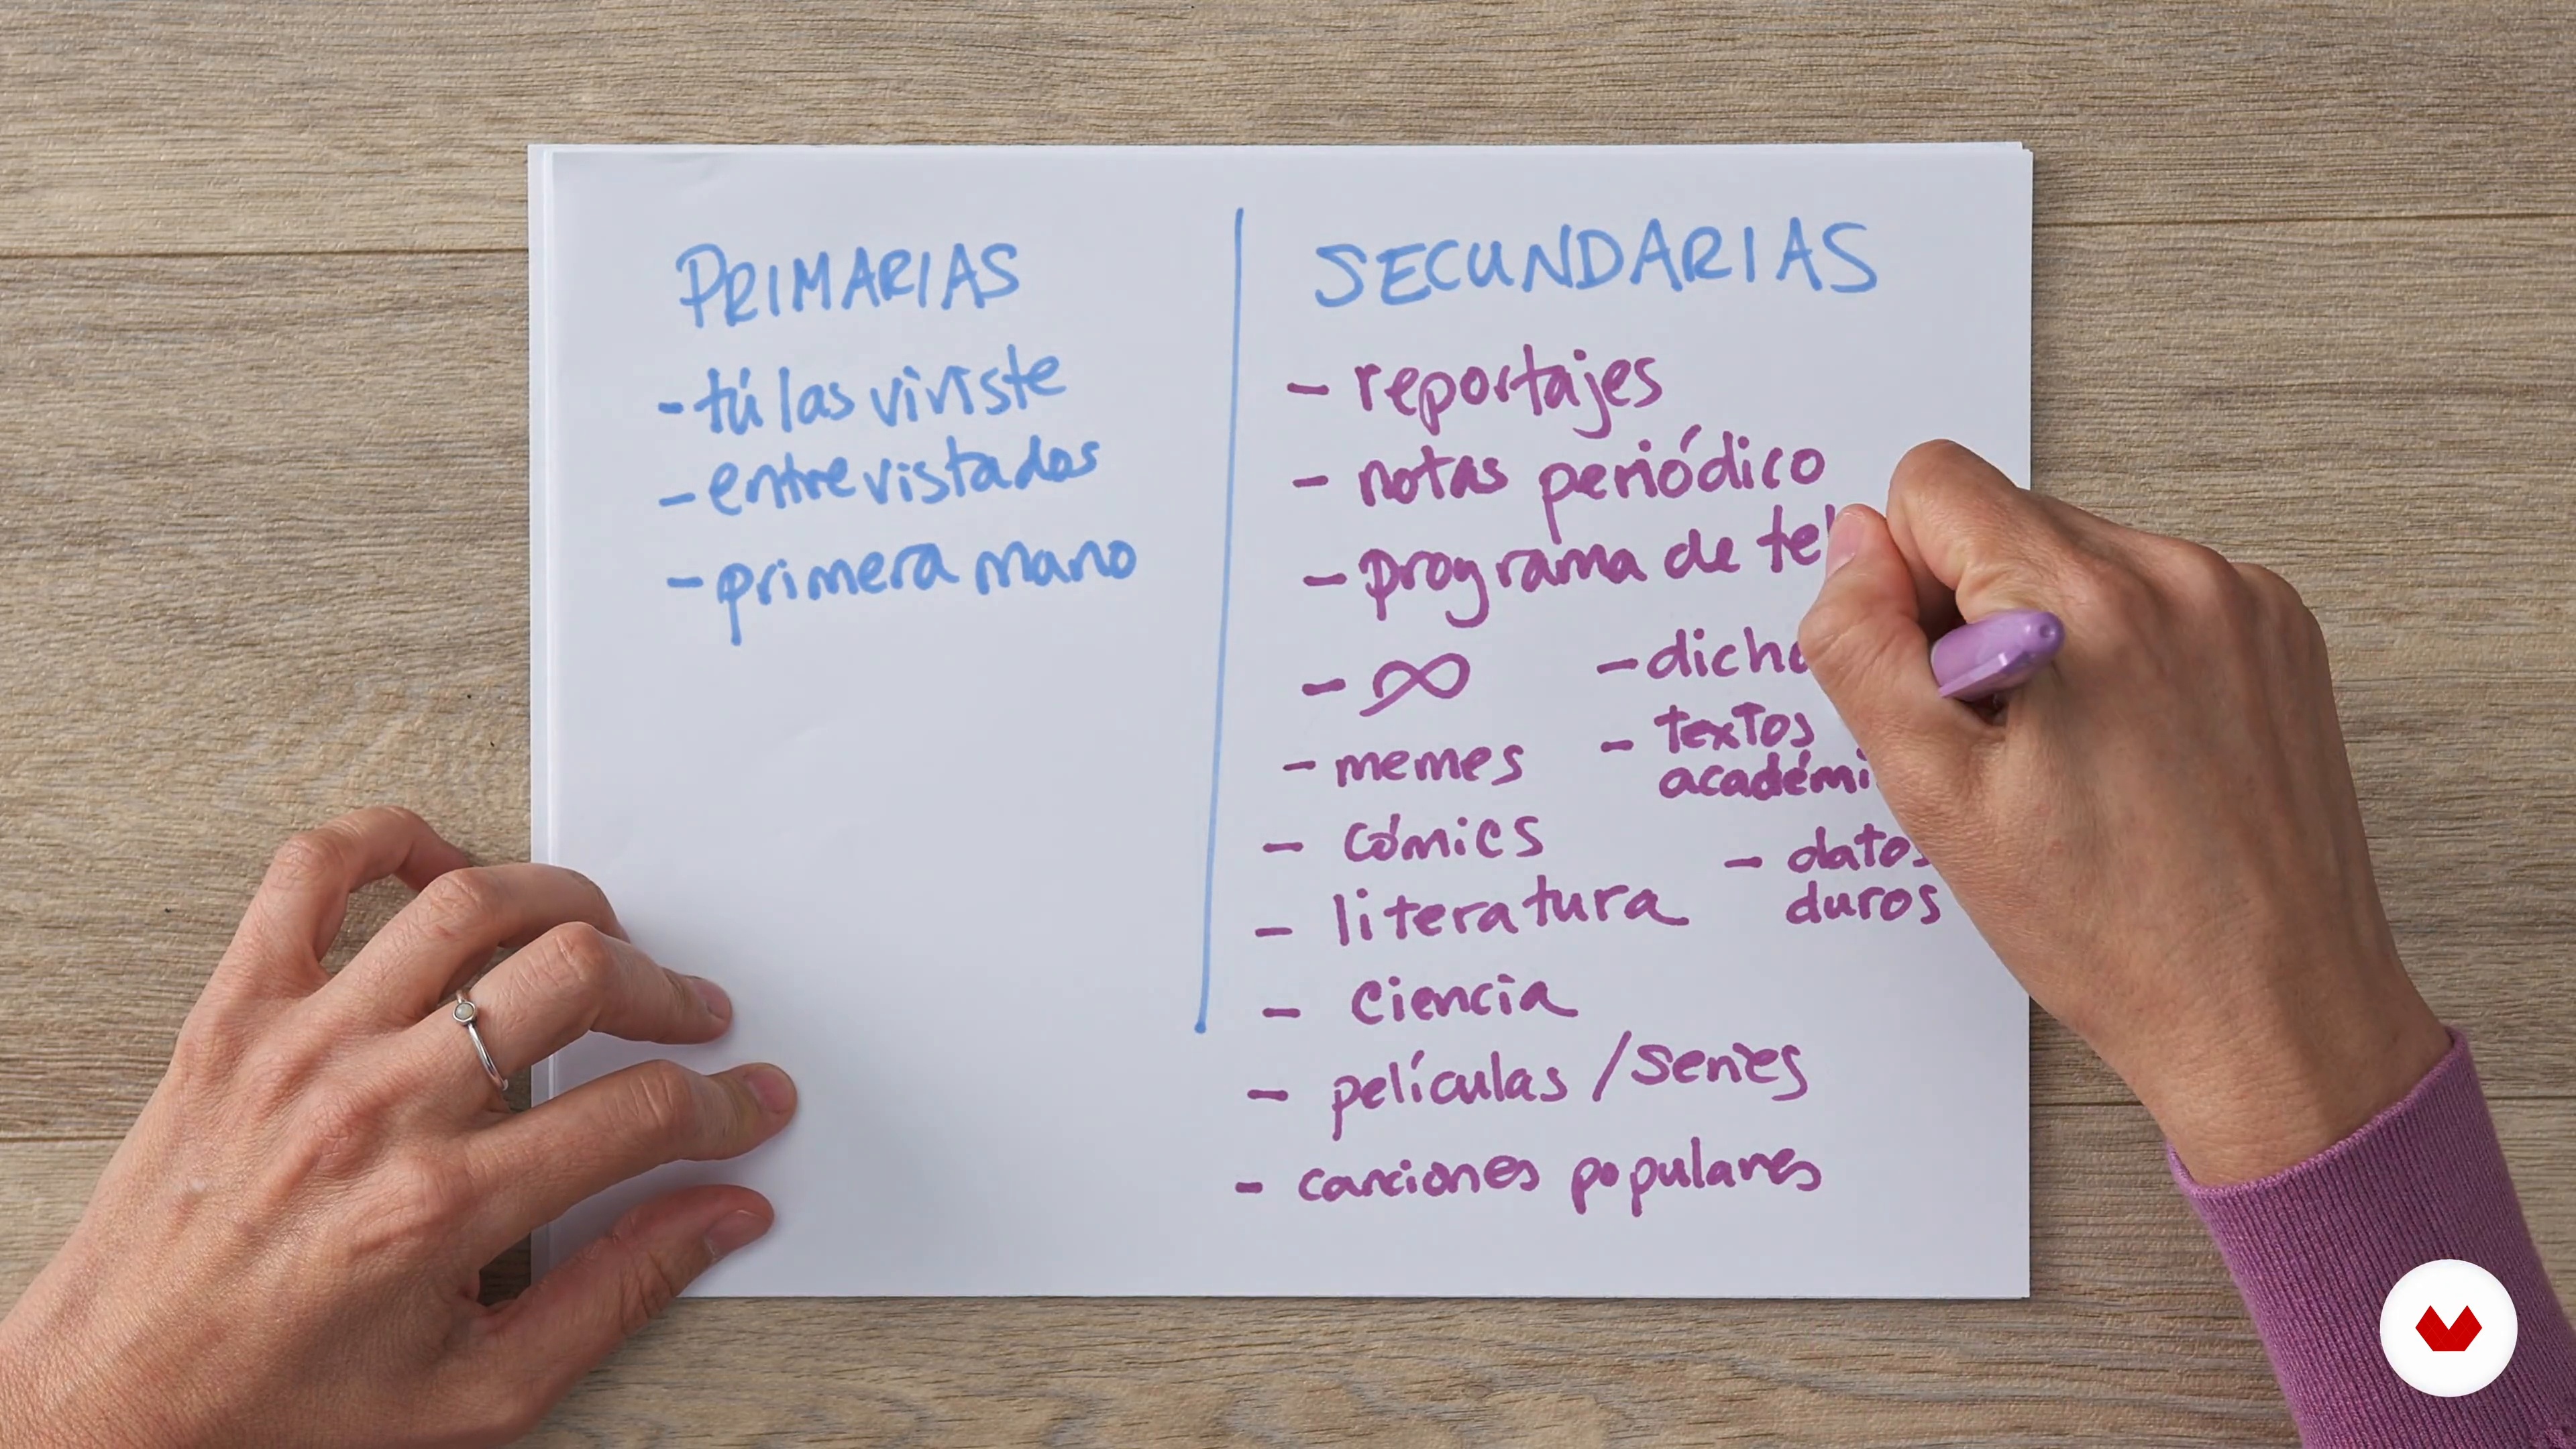 PRIMARIAS
- tú las viviste
- entrevistados
- primera mano
SECUNDARIAS
- reportajes
- notas periódico
- programa de
- ∞
- memes
- cómics
- literatura
- ciencia
- películas / series
- canciones populares
-
- textos
- datos
duros